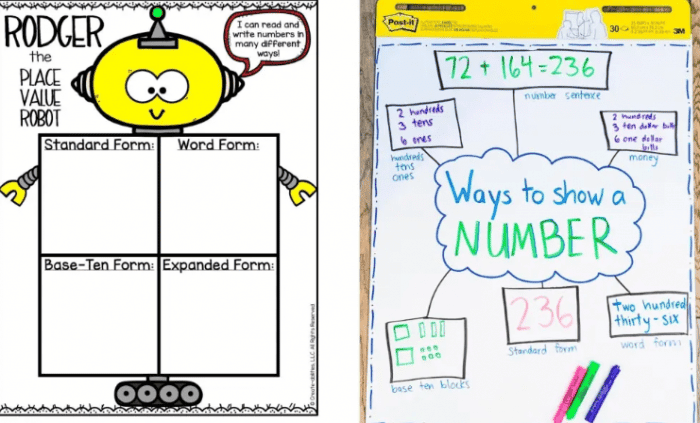 RODGER
the
PLACE
VALUE
ROBOT
I can read and
write numbers in
many different
ways!
Standard Form:
Word Form:
Base-Ten Form:
Expanded Form:
Post-it
30
3M
72 + 164 = 236
number sentence
2 hundreds
3 tens
6 ones
hundreds
tens
ones
2 hundreds
3 ten dollar bills
6 one dollar
bills
money
Ways to show a
NUMBER
base ten blocks
236
Standard form
two hundred
thirty-six
word form